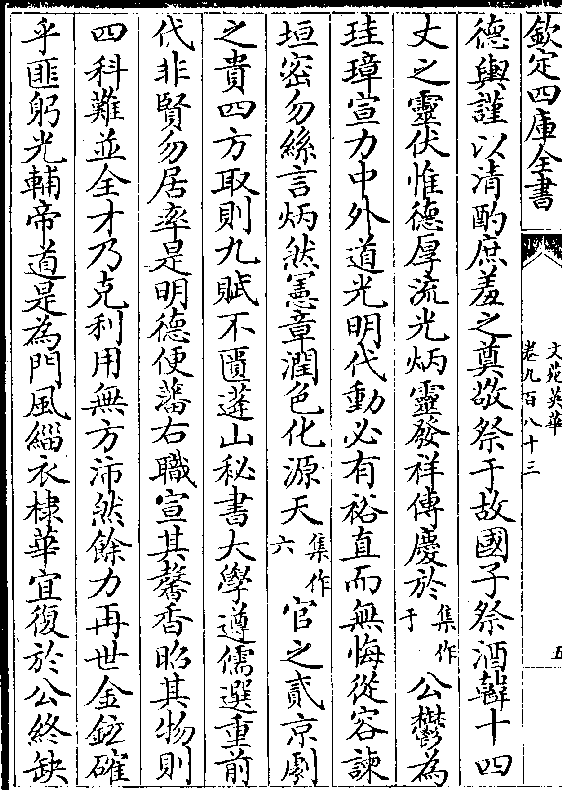 欽定四庫全書
文苑英華
卷九百八十三
五
德輿謹以清酌庶羞之奠敬祭于故國子祭酒韓十四
丈之靈伏惟德厚流光炳靈發祥傳慶於集作于公鬱為
珪璋宣力中外道光明代動必有裕直而無悔從容諫
垣密勿絲言炳然憲章潤色化源天集作六官之貳京劇
之貴四方取則九賦不匱蓬山秘書大學遵儒選重前
代非賢勿居率是明德便蕃右職宣其馨香昭其物則
四科難並全才乃克利用無方沛然餘力再世金鉉確
乎匪躬光輔帝道是為門風緇衣棣華宜復於公終缺